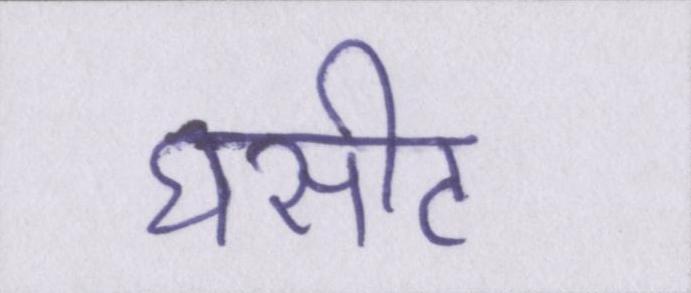 घसीट